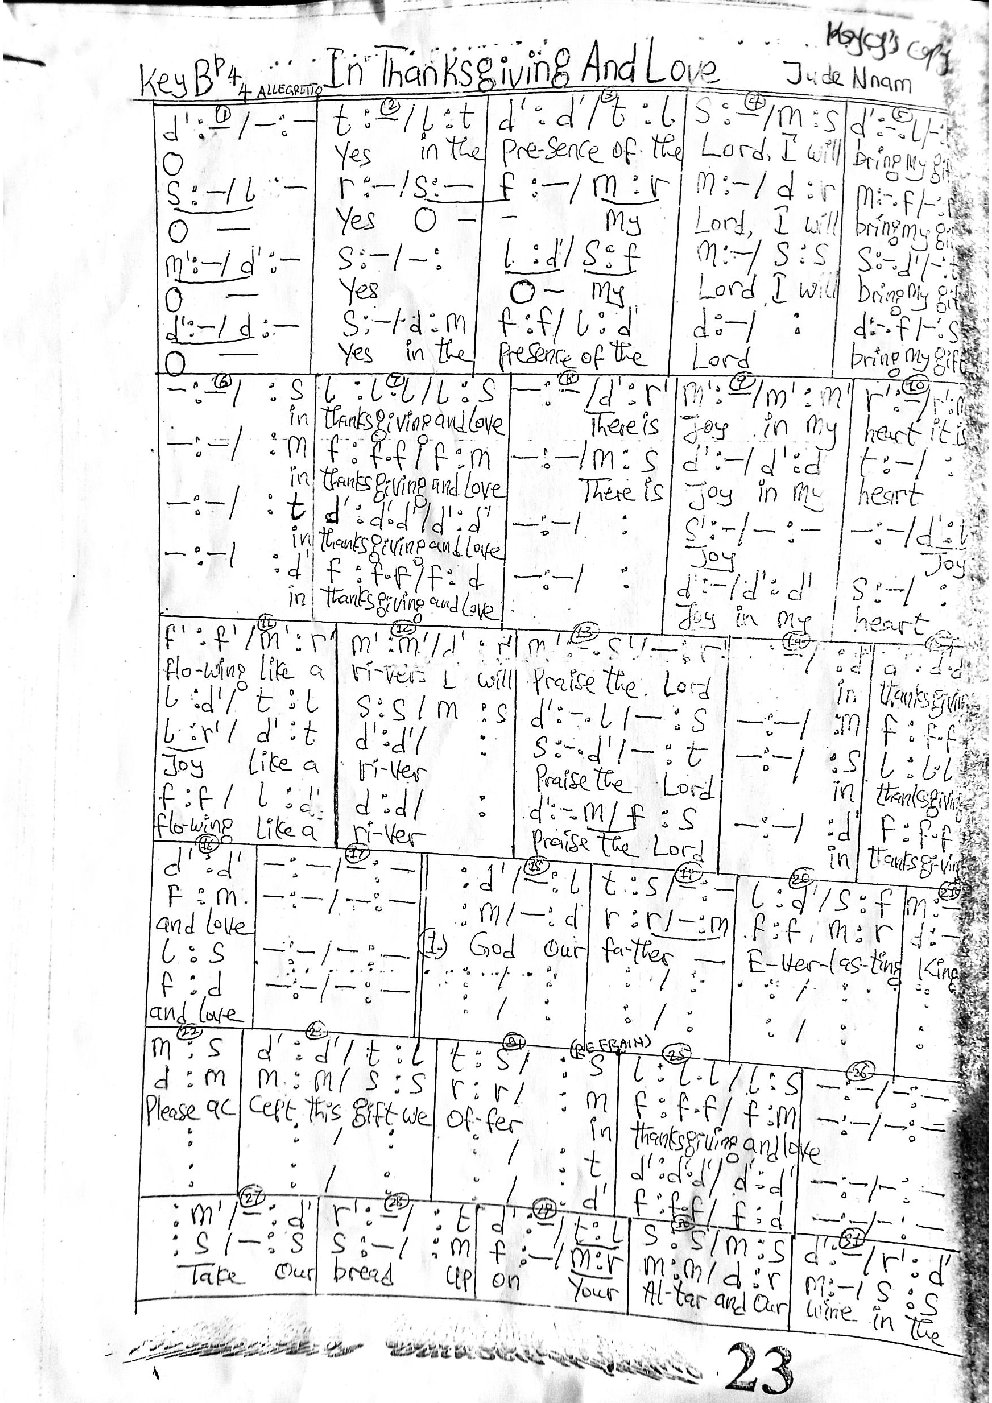 Key B♭ 4/4 ALLEGRETTO In Thanksgiving And Love Jude Nnam
copy
① ② ③ ④ ⑤
d' : – / – : – t : – / l : t d' : d' / t : l s : – / m : s d' : -. l / - :
O Yes in the Pre-sence of the Lord, I will bring my gif
s : – / l – r : – / s : – f : – / m : r m : – / d : r m : -. f / - :
O – Yes O – – My Lord, I will bring my gif
m' : – / d' : – s : – / – : l : d' / s : f m : – / s : s s : -. d' / - : t
O – Yes O – My Lord I will bring my gif
d' : – / d : – s : – / d : m f : f / l : d' d : – / : d : -. f / - : s
O – Yes in the Presence of the Lord bring my gift
⑥ ⑦ ⑧ ⑨ ⑩
– : – / : s l : l. l / l : s – : – / d' : r' m' : – / m' : m' r' : – / r' : m
in thanksgiving and love There is Joy in my heart it is
– : – / : m f : f. f / f : m – : – / m : s d' : – / d' : d t : – / :
in thanksgiving and love There is Joy in my heart
– : – / : t d' : d'. d' / d' : d' – : – / : s' : – / – : – – : – / d' : l
in thanksgiving and love Joy Joy
– : – / : d' f : f. f / f : d – : – / : d' : – / d' : d' s : – / :
in thanksgiving and love Joy in my heart
⑪ ⑫ ⑬ ⑭
f' : f' / m' : r' m' : m' / d' : r' m' : -. s' / – : r' – / : d' d : d. d
flo-wing like a ri-ver I will Praise the Lord in thanksgivin
l : d' / t : l s : s / m : s d' : -. l / – : s – : – / : m f : f. f
l : r' / d' : t d' : d' / : s : -. d' / – : t – : – / : s l : l. l
Joy like a ri-ver Praise the Lord in thanksgiving
f : f / l : d' d : d / : d' : -. m / f : s – : – / : d' f : f. f
flo-wing like a ri-ver Praise the Lord in thanksgivin
⑯ ⑰ ⑱ ⑲ ⑳
d' : d' – : – / – : – : d' / – : l t : s / – : – l : d' / s : f m : –
f : m – : – / – : – : m / – : d r : r / – : m f : f. m : r d : –
and love 1. God Our fa-ther – E-ver-las-ting King
l : s – : – / – : – : / : : / : : / :
f : d – : – / – : – : / : : / : : / :
and love
㉒ (REFRAIN) ㉕ ㉖
m : s d' : d' / t : l t : s / : s l : l. l / l : s – : – / – : –
d : m m : m / s : s r : r / : m f : f. f / f : m – : – / – : –
Please ac cept this gift we of-fer in thanksgiving and love
: : / : : / : t d' : d'. d' / d' : d' – : – / – : –
: : / : : / : d' f : f. f / f : d – : – / – : –
㉗ ㉘ ㉙ ㉚ ㉛
: m' / – : d' r' : – / : t d' : – / t : l s : s / m : s d' : – / r' : d'
: s / – : s s : – / : m f : – / m : r m : m / d : r m : – / s : s
Take Our bread up on Your Al-tar and Our wine in the
23